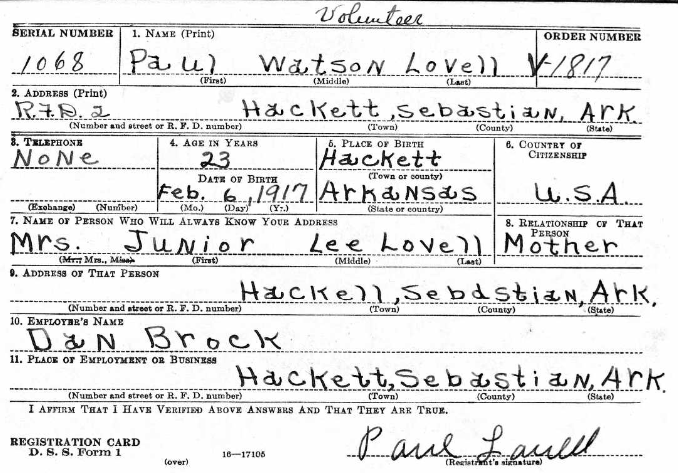 Volunteer
SERIAL NUMBER 1. NAME (Print) ORDER NUMBER
1068 Paul Watson Lovell V-1817
(First) (Middle) (Last)
2. ADDRESS (Print)
R.F.D. 2 Hackett, Sebastian, Ark
(Number and street or R. F. D. number) (Town) (County) (State)
3. TELEPHONE 4. AGE IN YEARS 5. PLACE OF BIRTH 6. COUNTRY OF CITIZENSHIP
None 23 Hackett
DATE OF BIRTH (Town or county)
Feb. 6, 1917 Arkansas U.S.A.
(Exchange) (Number) (Mo.) (Day) (Yr.) (State or country)
7. NAME OF PERSON WHO WILL ALWAYS KNOW YOUR ADDRESS 8. RELATIONSHIP OF THAT PERSON
Mrs. Junior Lee Lovell Mother
(Mr., Mrs., Miss) (First) (Middle) (Last)
9. ADDRESS OF THAT PERSON
Hackell, Sebastian, Ark.
(Number and street or R. F. D. number) (Town) (County) (State)
10. EMPLOYER'S NAME
Dan Brock
11. PLACE OF EMPLOYMENT OR BUSINESS
Hackett, Sebastian, Ark.
(Number and street or R. F. D. number) (Town) (County) (State)
I AFFIRM THAT I HAVE VERIFIED ABOVE ANSWERS AND THAT THEY ARE TRUE.
REGISTRATION CARD
D. S. S. Form 1 16—17105 Paul Lovell
(over) (Registrant's signature)